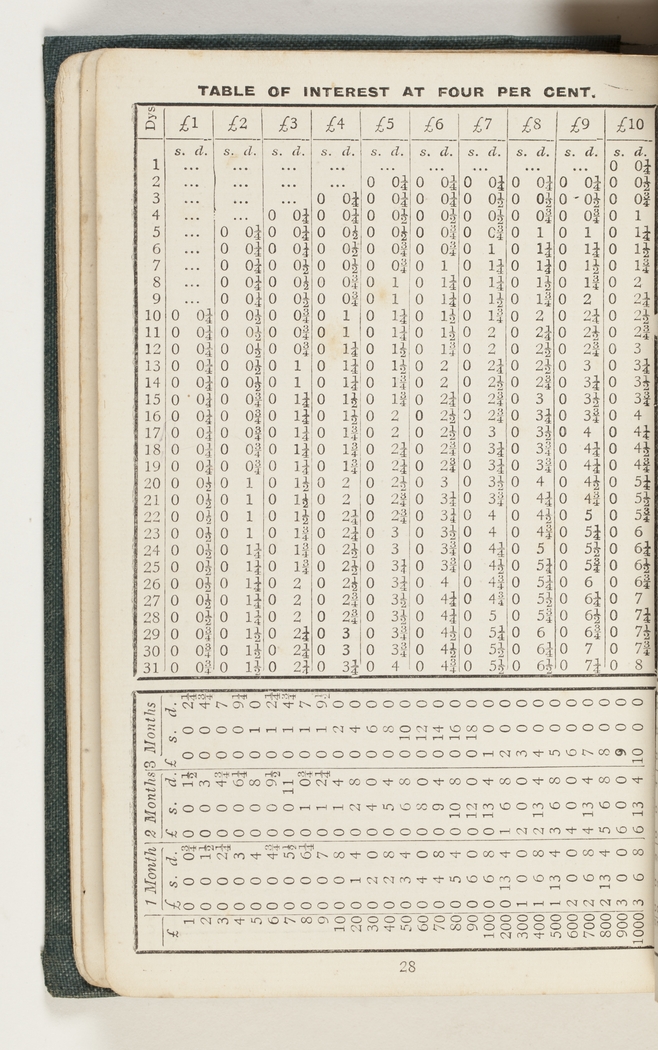 TABLE OF INTEREST AT FOUR PER CENT.
Dys £1 £2 £3 £4 £5 £6 £7 £8 £9 £10
s. d. s. d. s. d. s. d. s. d. s. d. s. d. s. d. s. d. s. d.
1 ... ... ... ... ... ... ... ... ... 0 0¼
2 ... ... ... ... 0 0¼ 0 0¼ 0 0¼ 0 0¼ 0 0¼ 0 0½
3 ... ... ... 0 0¼ 0 0¼ 0 0¼ 0 0½ 0 0½ 0 0½ 0 0¾
4 ... ... 0 0¼ 0 0¼ 0 0½ 0 0½ 0 0½ 0 0¾ 0 0¾ 0 1
5 ... 0 0¼ 0 0¼ 0 0½ 0 0½ 0 0¾ 0 0¾ 0 1 0 1 0 1¼
6 ... 0 0¼ 0 0¼ 0 0½ 0 0¾ 0 0¾ 0 1 0 1¼ 0 1¼ 0 1½
7 ... 0 0¼ 0 0½ 0 0½ 0 0¾ 0 1 0 1¼ 0 1¼ 0 1½ 0 1¾
8 ... 0 0¼ 0 0½ 0 0¾ 0 1 0 1¼ 0 1¼ 0 1½ 0 1¾ 0 2
9 ... 0 0¼ 0 0½ 0 0¾ 0 1 0 1¼ 0 1½ 0 1¾ 0 2 0 2¼
10 0 0¼ 0 0½ 0 0¾ 0 1 0 1¼ 0 1½ 0 1¾ 0 2 0 2¼ 0 2½
11 0 0¼ 0 0½ 0 0¾ 0 1 0 1¼ 0 1½ 0 2 0 2¼ 0 2½ 0 2¾
12 0 0¼ 0 0½ 0 0¾ 0 1¼ 0 1½ 0 1¾ 0 2 0 2½ 0 2¾ 0 3
13 0 0¼ 0 0½ 0 1 0 1¼ 0 1½ 0 2 0 2¼ 0 2½ 0 3 0 3¼
14 0 0¼ 0 0½ 0 1 0 1¼ 0 1¾ 0 2 0 2½ 0 2¾ 0 3¼ 0 3½
15 0 0¼ 0 0¾ 0 1¼ 0 1½ 0 1¾ 0 2¼ 0 2¾ 0 3 0 3½ 0 3¾
16 0 0¼ 0 0¾ 0 1¼ 0 1½ 0 2 0 2½ 0 2¾ 0 3¼ 0 3¾ 0 4
17 0 0¼ 0 0¾ 0 1¼ 0 1¾ 0 2 0 2½ 0 3 0 3½ 0 4 0 4¼
18 0 0¼ 0 0¾ 0 1¼ 0 1¾ 0 2¼ 0 2¾ 0 3¼ 0 3¾ 0 4¼ 0 4½
19 0 0¼ 0 0¾ 0 1¼ 0 1¾ 0 2¼ 0 2¾ 0 3¼ 0 3¾ 0 4¼ 0 4¾
20 0 0½ 0 1 0 1½ 0 2 0 2½ 0 3 0 3½ 0 4 0 4½ 0 5¼
21 0 0½ 0 1 0 1½ 0 2 0 2¾ 0 3¼ 0 3¾ 0 4¼ 0 4¾ 0 5½
22 0 0½ 0 1 0 1½ 0 2¼ 0 2¾ 0 3¼ 0 4 0 4½ 0 5 0 5¾
23 0 0½ 0 1 0 1¾ 0 2¼ 0 3 0 3½ 0 4 0 4¾ 0 5¼ 0 6
24 0 0½ 0 1¼ 0 1¾ 0 2½ 0 3 0 3¾ 0 4¼ 0 5 0 5½ 0 6¼
25 0 0½ 0 1¼ 0 1¾ 0 2½ 0 3¼ 0 3¾ 0 4½ 0 5¼ 0 5¾ 0 6½
26 0 0½ 0 1¼ 0 2 0 2½ 0 3¼ 0 4 0 4¾ 0 5¼ 0 6 0 6¾
27 0 0½ 0 1¼ 0 2 0 2¾ 0 3½ 0 4¼ 0 4¾ 0 5½ 0 6¼ 0 7
28 0 0½ 0 1¼ 0 2 0 2¾ 0 3½ 0 4¼ 0 5 0 5½ 0 6½ 0 7¼
29 0 0¾ 0 1½ 0 2¼ 0 3 0 3¾ 0 4½ 0 5¼ 0 6 0 6¾ 0 7½
30 0 0¾ 0 1½ 0 2¼ 0 3 0 3¾ 0 4½ 0 5½ 0 6¼ 0 7 0 7¾
31 0 0¾ 0 1½ 0 2¼ 0 3¼ 0 4 0 4¾ 0 5½ 0 6½ 0 7¼ 0 8
1 Month 2 Months 3 Months
£ £ s. d. £ s. d. £ s. d.
1 0 0 0¾ 0 0 1½ 0 0 2¼
2 0 0 1½ 0 0 3 0 0 4¾
3 0 0 2¼ 0 0 4¾ 0 0 7
4 0 0 3 0 0 6¼ 0 0 9¼
5 0 0 4 0 0 8 0 1 0
6 0 0 4¾ 0 0 9½ 0 1 2¼
7 0 0 5½ 0 0 11 0 1 4¾
8 0 0 6¼ 0 1 0¾ 0 1 7
9 0 0 7 0 1 2¼ 0 1 9½
10 0 0 8 0 1 4 0 2 0
20 0 1 4 0 2 8 0 4 0
30 0 2 0 0 4 0 0 6 0
40 0 2 8 0 5 4 0 8 0
50 0 3 4 0 6 8 0 10 0
60 0 4 0 0 8 0 0 12 0
70 0 4 8 0 9 4 0 14 0
80 0 5 4 0 10 8 0 16 0
90 0 6 0 0 12 0 0 18 0
100 0 6 8 0 13 4 1 0 0
200 0 13 4 1 6 8 2 0 0
300 1 0 0 2 0 0 3 0 0
400 1 6 8 2 13 4 4 0 0
500 1 13 4 3 6 8 5 0 0
600 2 0 0 4 0 0 6 0 0
700 2 6 8 4 13 4 7 0 0
800 2 13 4 5 6 8 8 0 0
900 3 0 0 6 0 0 9 0 0
1000 3 6 8 6 13 4 10 0 0
28